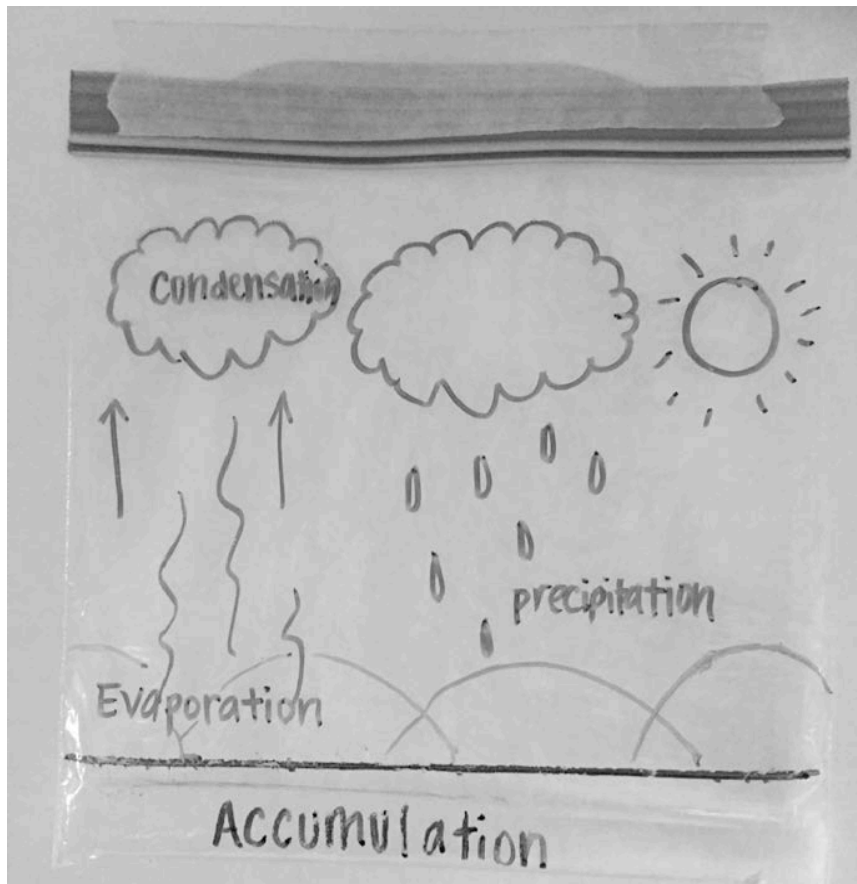 condensation
precipitation
Evaporation
ACCUMUlation